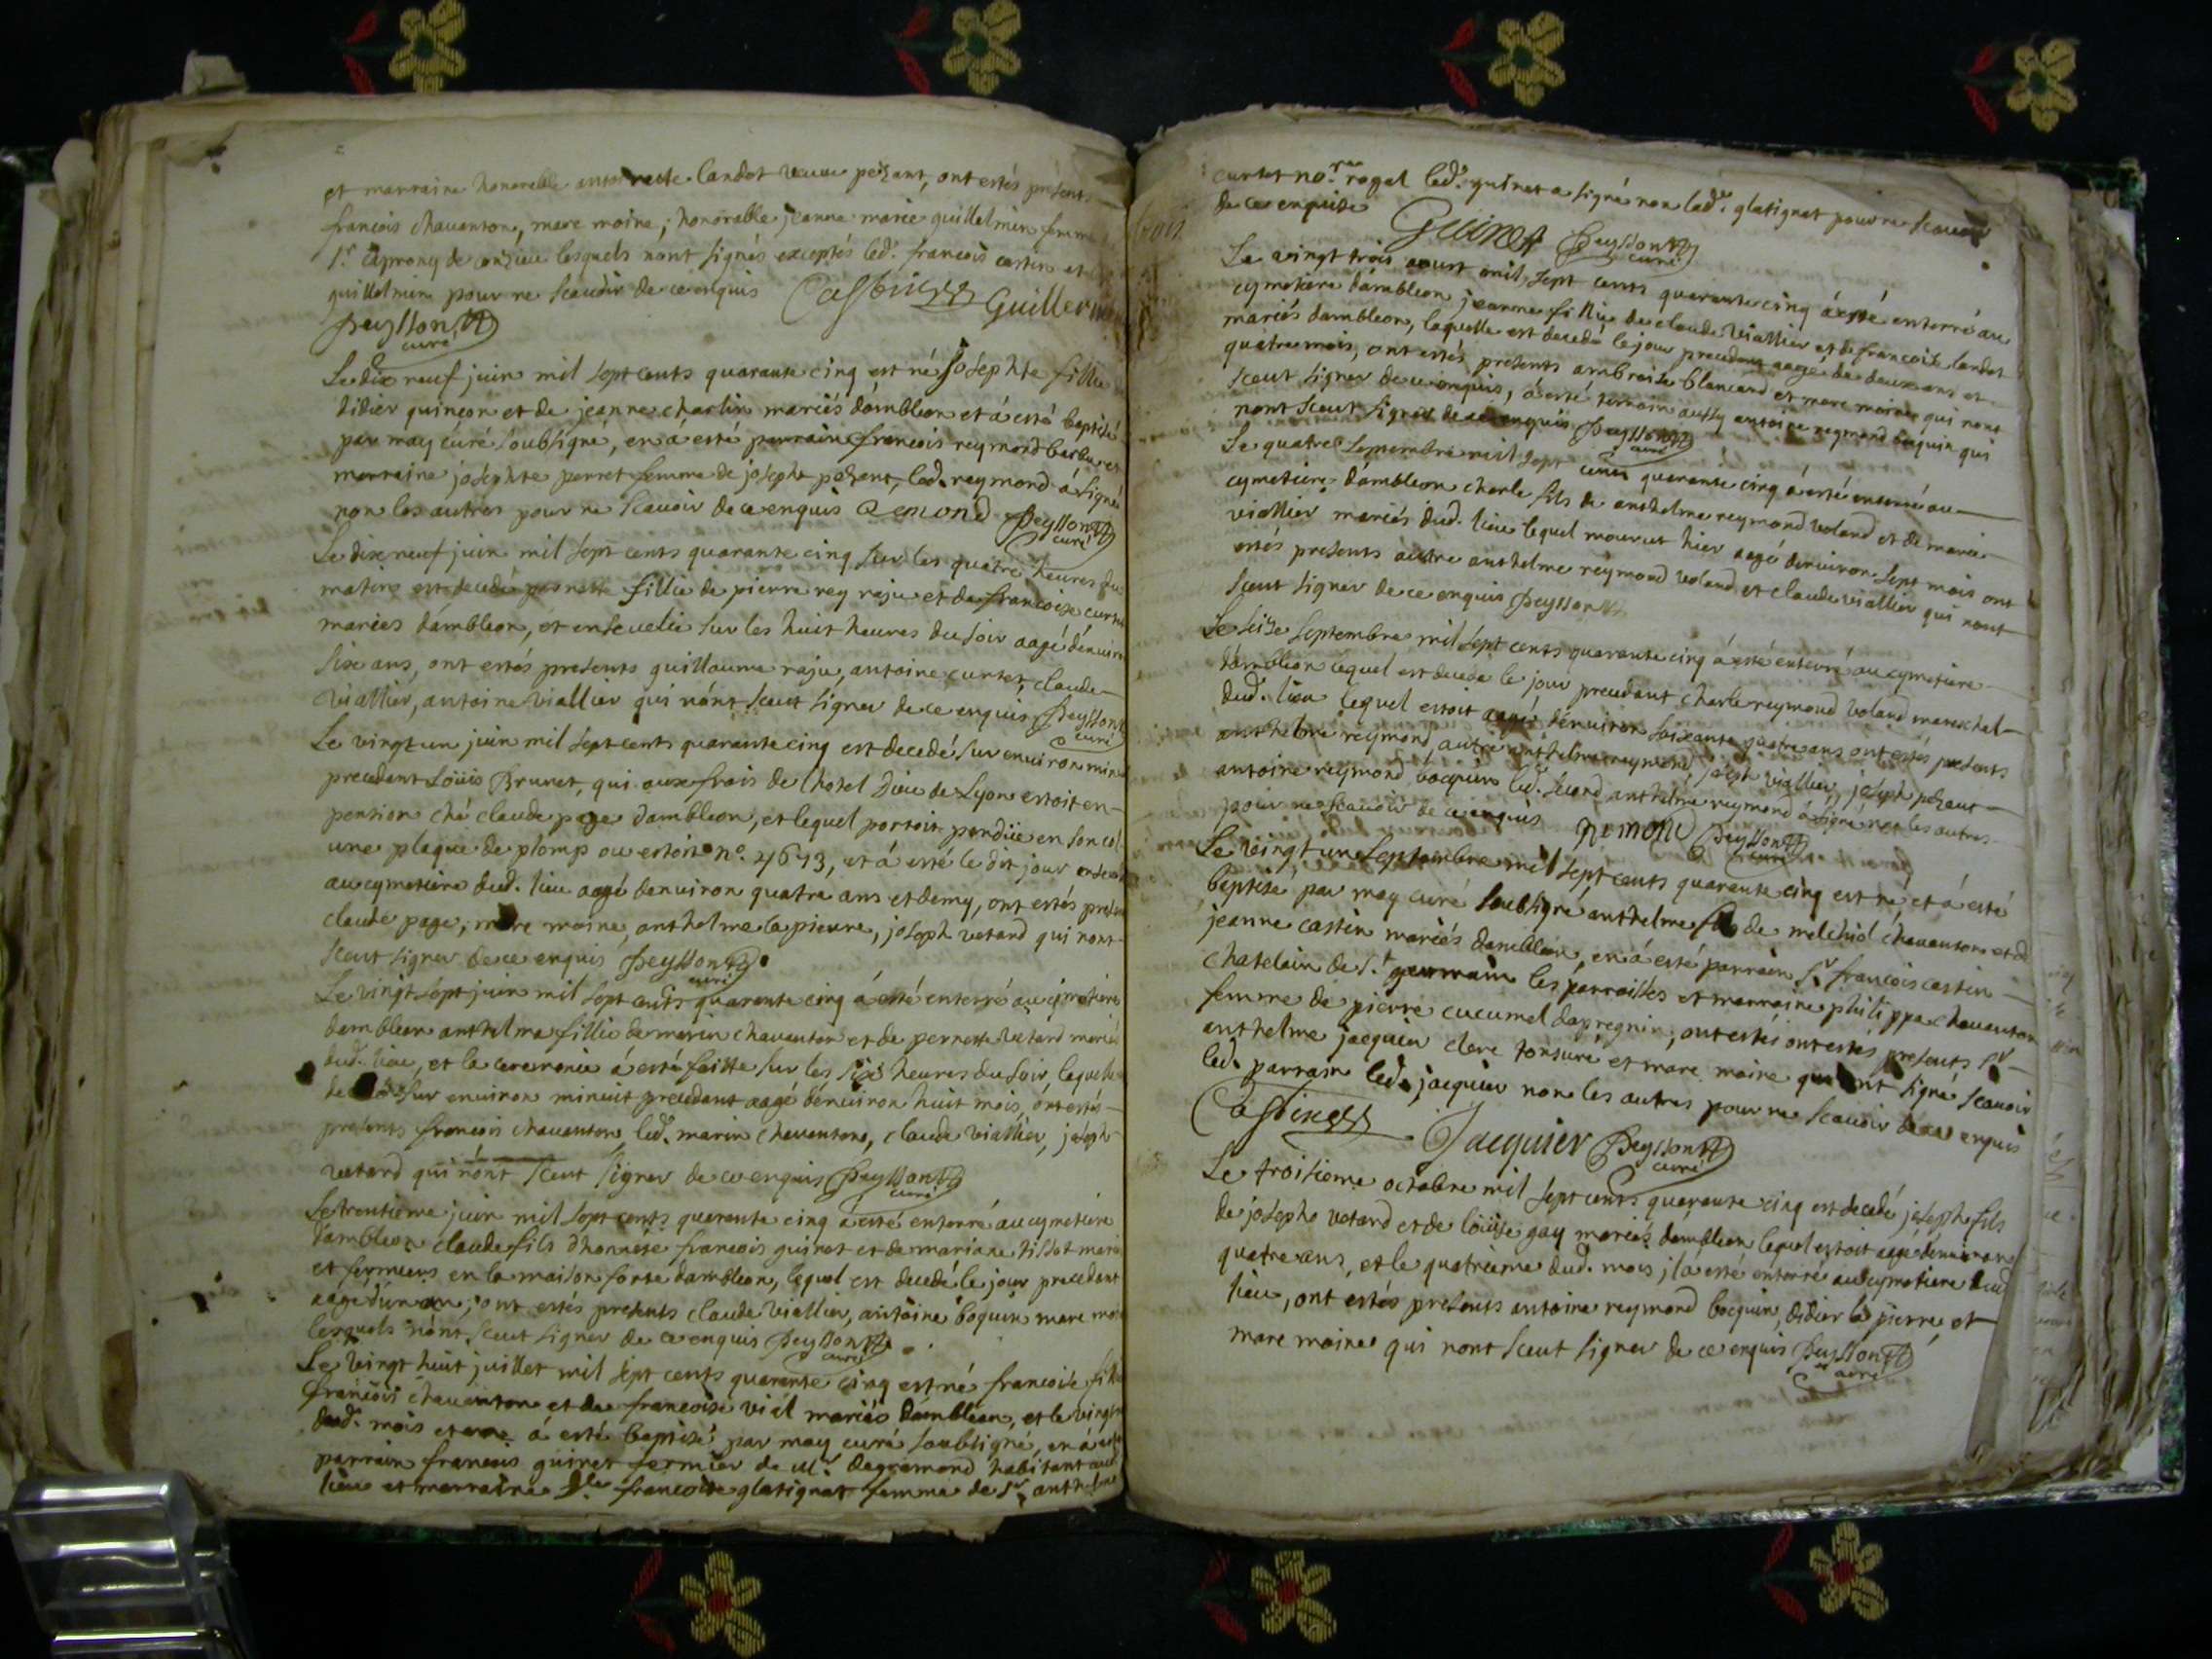 et marraine honorable antoinette landot veuve pezant, ont estés présent
francois chavanton, marc moine, honorable jeanne marie guillelmin femme
Sr. caprony de conzieu lesquels nont signés exceptés led. francois castin et
guillelmin pour ne scavoir de ce enquis Castin Guillermin
Peysson
curé
Le dix neuf juin mil sept cents quarante cinq est né Josephte fillie
didier quinçon et de jeanne charlin mariés dámbleon et á esté baptisé
par moy curé soubsigné, en á esté parrain francois reymond barbu et
marraine josephte perret femme de joseph pezant, led. reymond á signé
non les autres pour ne scavoir de ce enquis Remond Peysson
curé
Le dix neuf juin mil sept cents quarante cinq sur les quatre heures du
matin est decedé pernette fillie de pierre rey raju et de francoise curtet
mariés dámbleon, et ensevelie sur les huit heures du soir aagé dénviron
six ans, ont estés presents guillaume raju, antoine curtet, claude
viallier, antoine viallier qui nónt sceut signer de ce enquis Peysson
curé
Le vingt un juin mil sept cents quarante cinq est decedé sur environ minuit
precedant Loüis Brunet, qui aux frais de lhotel Dieu de Lyon estoit en
pension ché claude page dambleon, et lequel portoit pendüe en son col
une plaque de plomp ou estoit no. 4643, et á esté le dit jour enseveli
au cymetiere dud. lieu aagé denviron quatre ans et demy, ont estés present
claude page, marc moine, anthelme la pierre, joseph vetard qui nont
sceut signer de ce enquis Peysson
curé
Le vingt sept juin mil sept cents quarante cinq á esté enterré au cymetiere
dambleon anthelma fillie de marin chavanton et de pernette vetard mariés
dud. lieu, et la ceremonie á esté faitte sur les six heures du soir, laquelle
sur environ minuit precedant aagé dénviron huit mois, ont estés
présents francois chavanton, led. marin chavanton, claude viallier, joseph
vetard qui nónt sceut signer de ce enquis Peysson
curé
Le trentieme juin mil sept cents quarante cinq á esté enterré au cymetiere
dámbleon claude fils dhonnéte francois guinet et de mariane tissot mariés
et fermiers en la maison forte dambleon, lequel est decedé le jour precedant
aagé dun an, ont estés presents claude viallier, antoine boquin marc moine
lesquels nónt sceut signer de ce enquis Peysson
curé
Le vingt huit juillet mil sept cents quarante cinq est né francoise fillie
francois chavanton et de francoise vial mariés dámbleon, et le vingt
dud. mois et á esté baptisé par moy curé soubsigné, en á esté
parrain francois guinet fermier de Mr. degramond habitant aud
lieu et marraine Dlle francoise glatignat femme de Sr. anthelme
curtet nore. royal led. guinet a signé non lade. glatignat pour ne scavoir
de ce enquise Guinet Peysson
curé
Le vingt trois aoust mil sept cents quarante cinq á esté enterré au
cymetiere dámbleon jeanne fillie de claude viallier et de francoise landot
mariés dambleon, laquelle est decedé le jour precedant aagé de deux ans et
quatre mois, ont estés présents ambroise blancard et marc moine qui nont
sceut signer de ce enquis, á esté temoin aussy antoine reymond boquin qui
nont sceut signer de ce enquis Peysson
curé
Le quatre septembre mil sept cents quarante cinq á esté enterré au
cymetiere dámbleon charle fils de anthelme reymond voland et de marie
viallier mariés dud. lieu lequel mourut hier aagé denviron sept mois ont
estés presents autre anthelme reymond voland et claude viallier qui nont
sceut signer de ce enquis Peysson
Le seize septembre mil sept cents quarante cinq á esté enterré au cymetiere
dámbleon lequel est decedé le jour precedant charle reymond voland mareschal
dud. lieu lequel estoit aagé dénviron soixante quatre ans ont estés presents
anthelme reymond, autre anthelme reymond, joseph viallier, joseph pezant
antoine reymond bocquin led. second anthelme reymond á signé non les autres
pour ne scavoir de ce enquis Remond Peysson
curé
Le vingt un septembre mil sept cents quarante cinq est né et á esté
baptisé par moy curé soubsigné anthelme fils de melchiol chavanton et de
jeanne castin mariés dambleon, en á esté parrain Sr francois castin
chatelain de St. germain les parroisses et marraine philippa chavanton
femme de pierre cucumel dapregnin, ont estés ont estés presents Sr
anthelme jacquier clerc tonsuré et marc moine qui ont signé scavoir
led. parrain led. jacquier non les autres pour ne scavoir de ce enquis
Castin Jacquier Peysson
curé
Le troisieme octobre mil sept cents quarante cinq est decedé joseph fils
de josepho vetard et de loüise gay mariés dambleon lequel estoit aagé dénviron
quatre ans, et le quatrieme dud. mois jl á esté enterré au cymetiere dud
lieu, ont estés presents antoine reymond bocquin, didier la pierre, et
marc moine qui nont sceut signer de ce enquis Peysson
curé